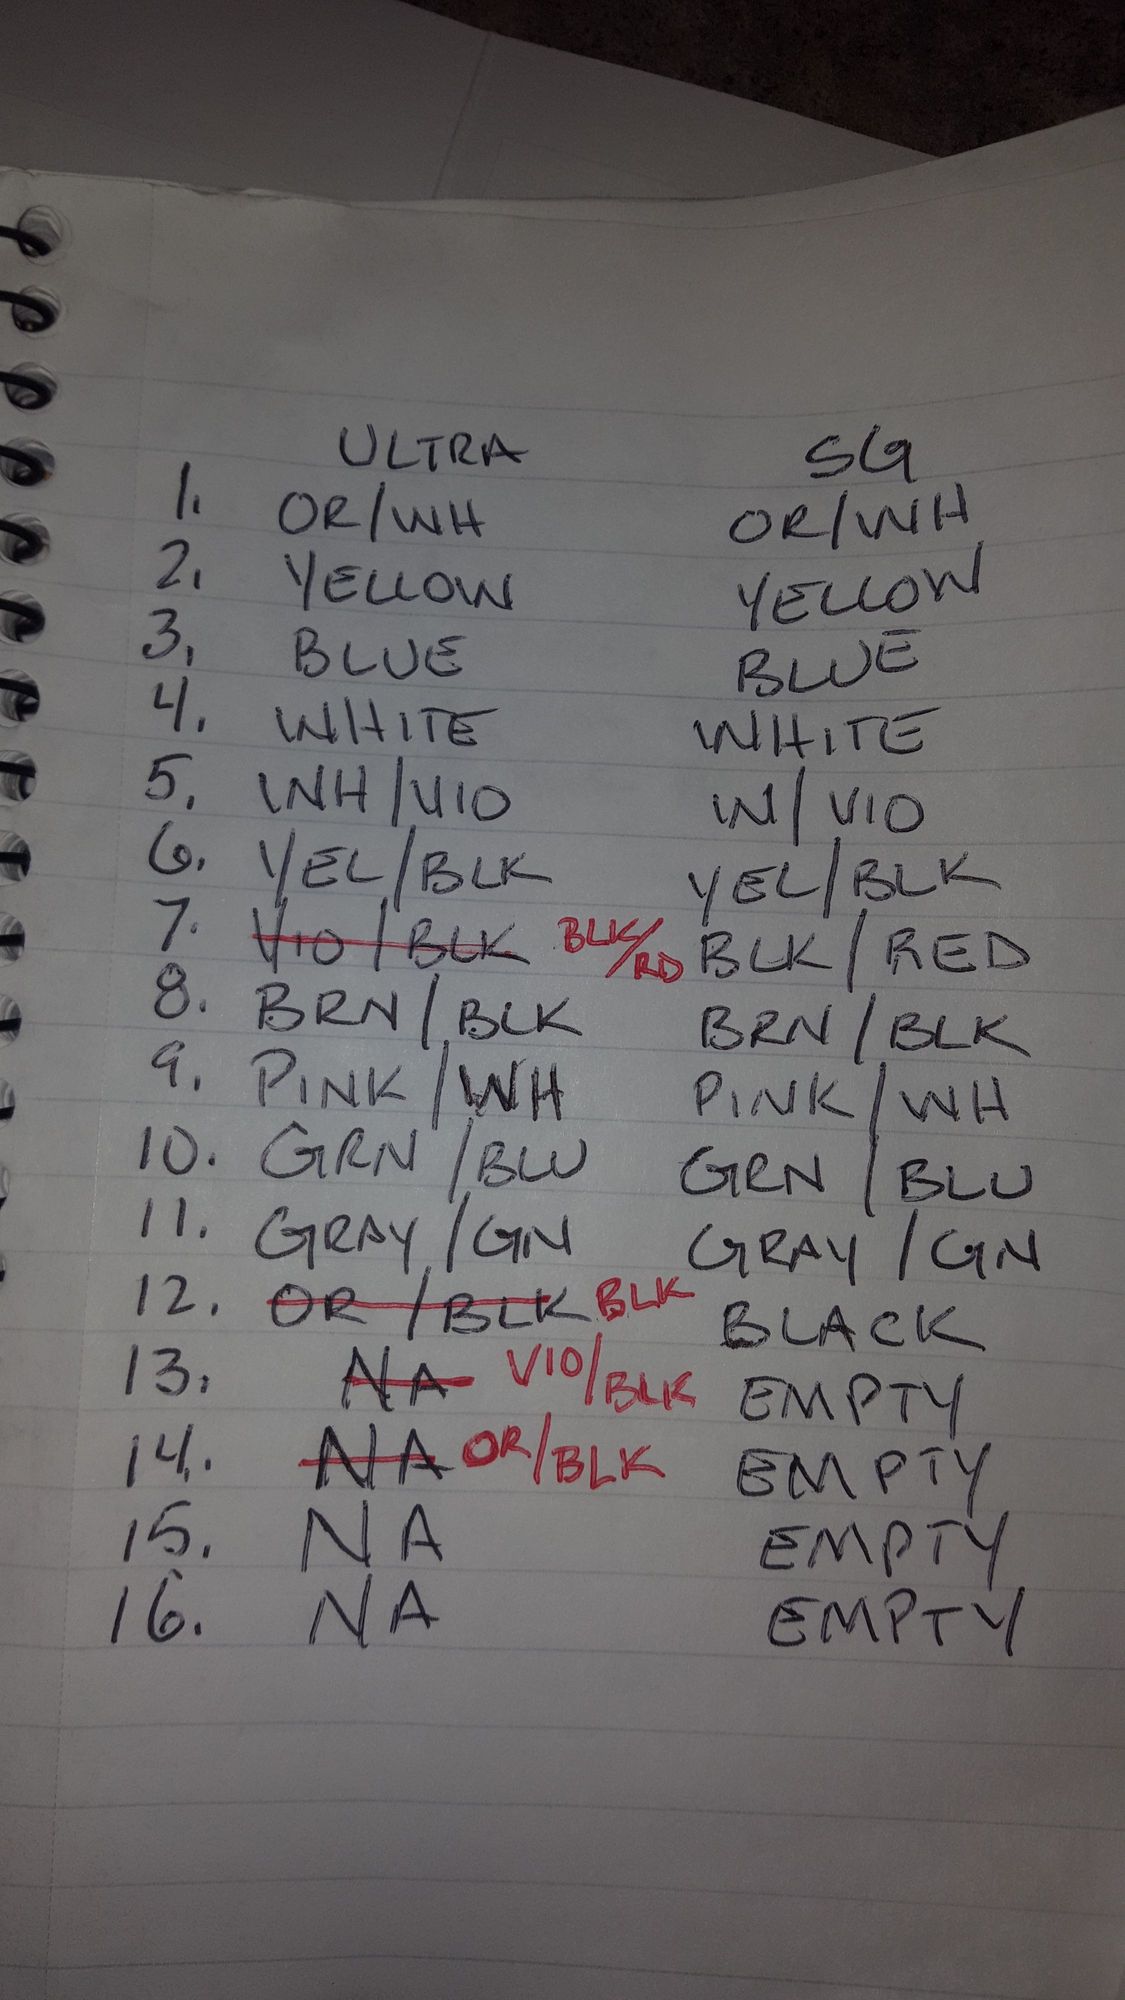 ULTRA SG
1. OR/WH OR/WH
2. YELLOW YELLOW
3. BLUE BLUE
4. WHITE WHITE
5. WH/VIO W/VIO
6. YEL/BLK YEL/BLK
7. VIO/BLK BLK/RD BLK/RED
8. BRN/BLK BRN/BLK
9. PINK/WH PINK/WH
10. GRN/BLU GRN/BLU
11. GRAY/GN GRAY/GN
12. OR/BLK BLK BLACK
13. NA VIO/BLK EMPTY
14. NA OR/BLK EMPTY
15. NA EMPTY
16. NA EMPTY